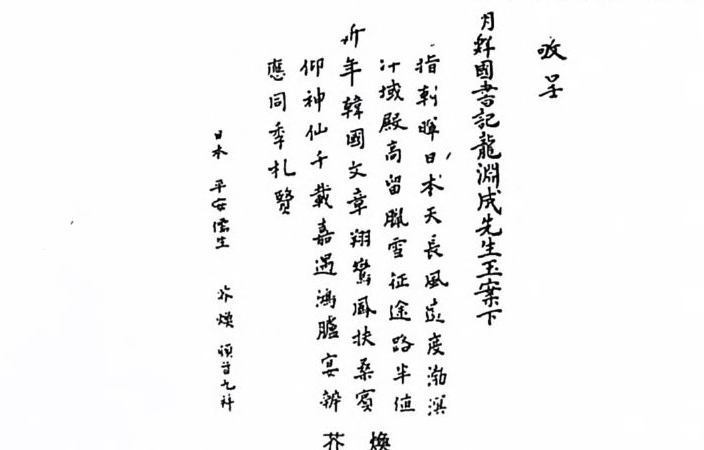 敬呈
月鮮國書記龍淵成先生玉案下
指刺暉日本天長風遠度渤溟
域殿高留臘雪征途路半值
年韓國文章翔鸞鳳扶桑賓
仰神仙千載嘉遇鴻臚宴辦
應同季札賢
日本 平安儒生 芥煥 頓首九拜
芥 煥